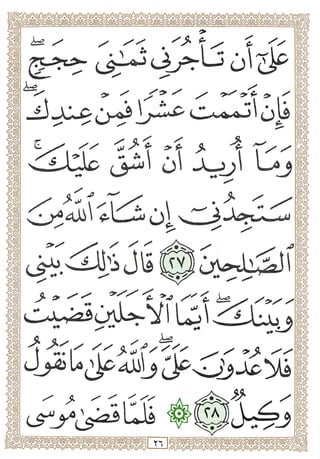 عَلَىٰٓ أَن تَأۡجُرَنِي ثَمَٰنِيَ حِجَجٖۖ
فَإِنۡ أَتۡمَمۡتَ عَشۡرٗا فَمِنۡ عِندِكَۖ
وَمَآ أُرِيدُ أَنۡ أَشُقَّ عَلَيۡكَۚ
سَتَجِدُنِيٓ إِن شَآءَ ٱللَّهُ مِنَ
ٱلصَّٰلِحِينَ ٢٧ قَالَ ذَٰلِكَ بَيۡنِي
وَبَيۡنَكَۖ أَيَّمَا ٱلۡأَجَلَيۡنِ قَضَيۡتُ
فَلَا عُدۡوَٰنَ عَلَيَّۖ وَٱللَّهُ عَلَىٰ مَا نَقُولُ
وَكِيلٞ ٢٨ ۞ فَلَمَّا قَضَىٰ مُوسَى
٢٦